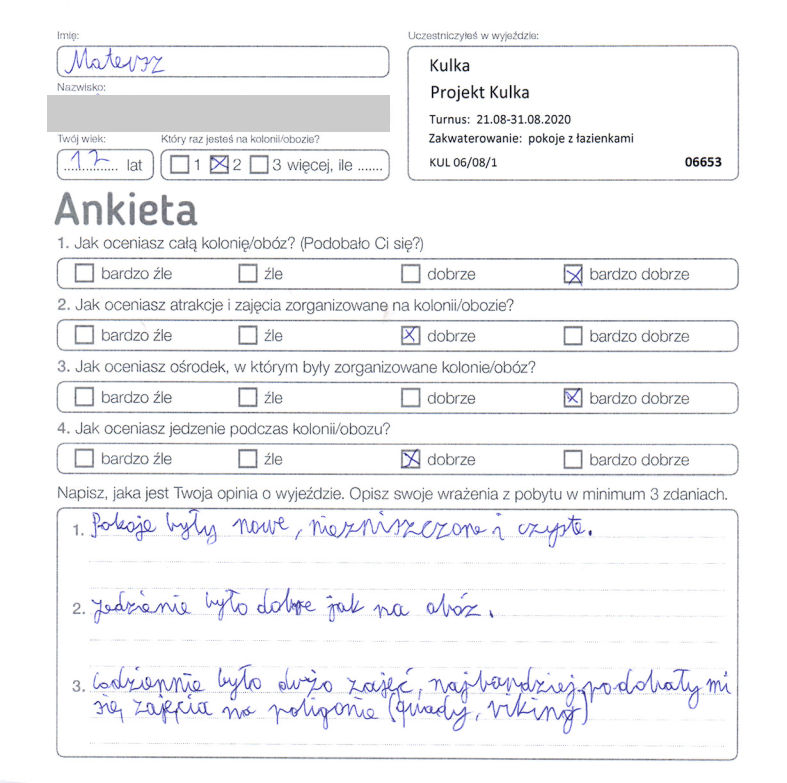 Imię:
Mateusz
Uczestniczyłeś w wyjeździe:
Kulka
Projekt Kulka
Turnus: 21.08-31.08.2020
Zakwaterowanie: pokoje z łazienkami
KUL 06/08/1 06653
Nazwisko:
Twój wiek:
12 lat
Który raz jesteś na kolonii/obozie?
1 2 3 więcej, ile .......
Ankieta
1. Jak oceniasz całą kolonię/obóz? (Podobało Ci się?)
bardzo źle źle dobrze bardzo dobrze
2. Jak oceniasz atrakcje i zajęcia zorganizowane na kolonii/obozie?
bardzo źle źle dobrze bardzo dobrze
3. Jak oceniasz ośrodek, w którym były zorganizowane kolonie/obóz?
bardzo źle źle dobrze bardzo dobrze
4. Jak oceniasz jedzenie podczas kolonii/obozu?
bardzo źle źle dobrze bardzo dobrze
Napisz, jaka jest Twoja opinia o wyjeździe. Opisz swoje wrażenia z pobytu w minimum 3 zdaniach.
1. Pokoje były nowe, niezniszczone i czyste.
2. Jedzienie było dobre jak na obóz.
3. Codziennie było dużo zajęć, najbardziej podobały mi
się zajęcia na poligonie (quady, viking)